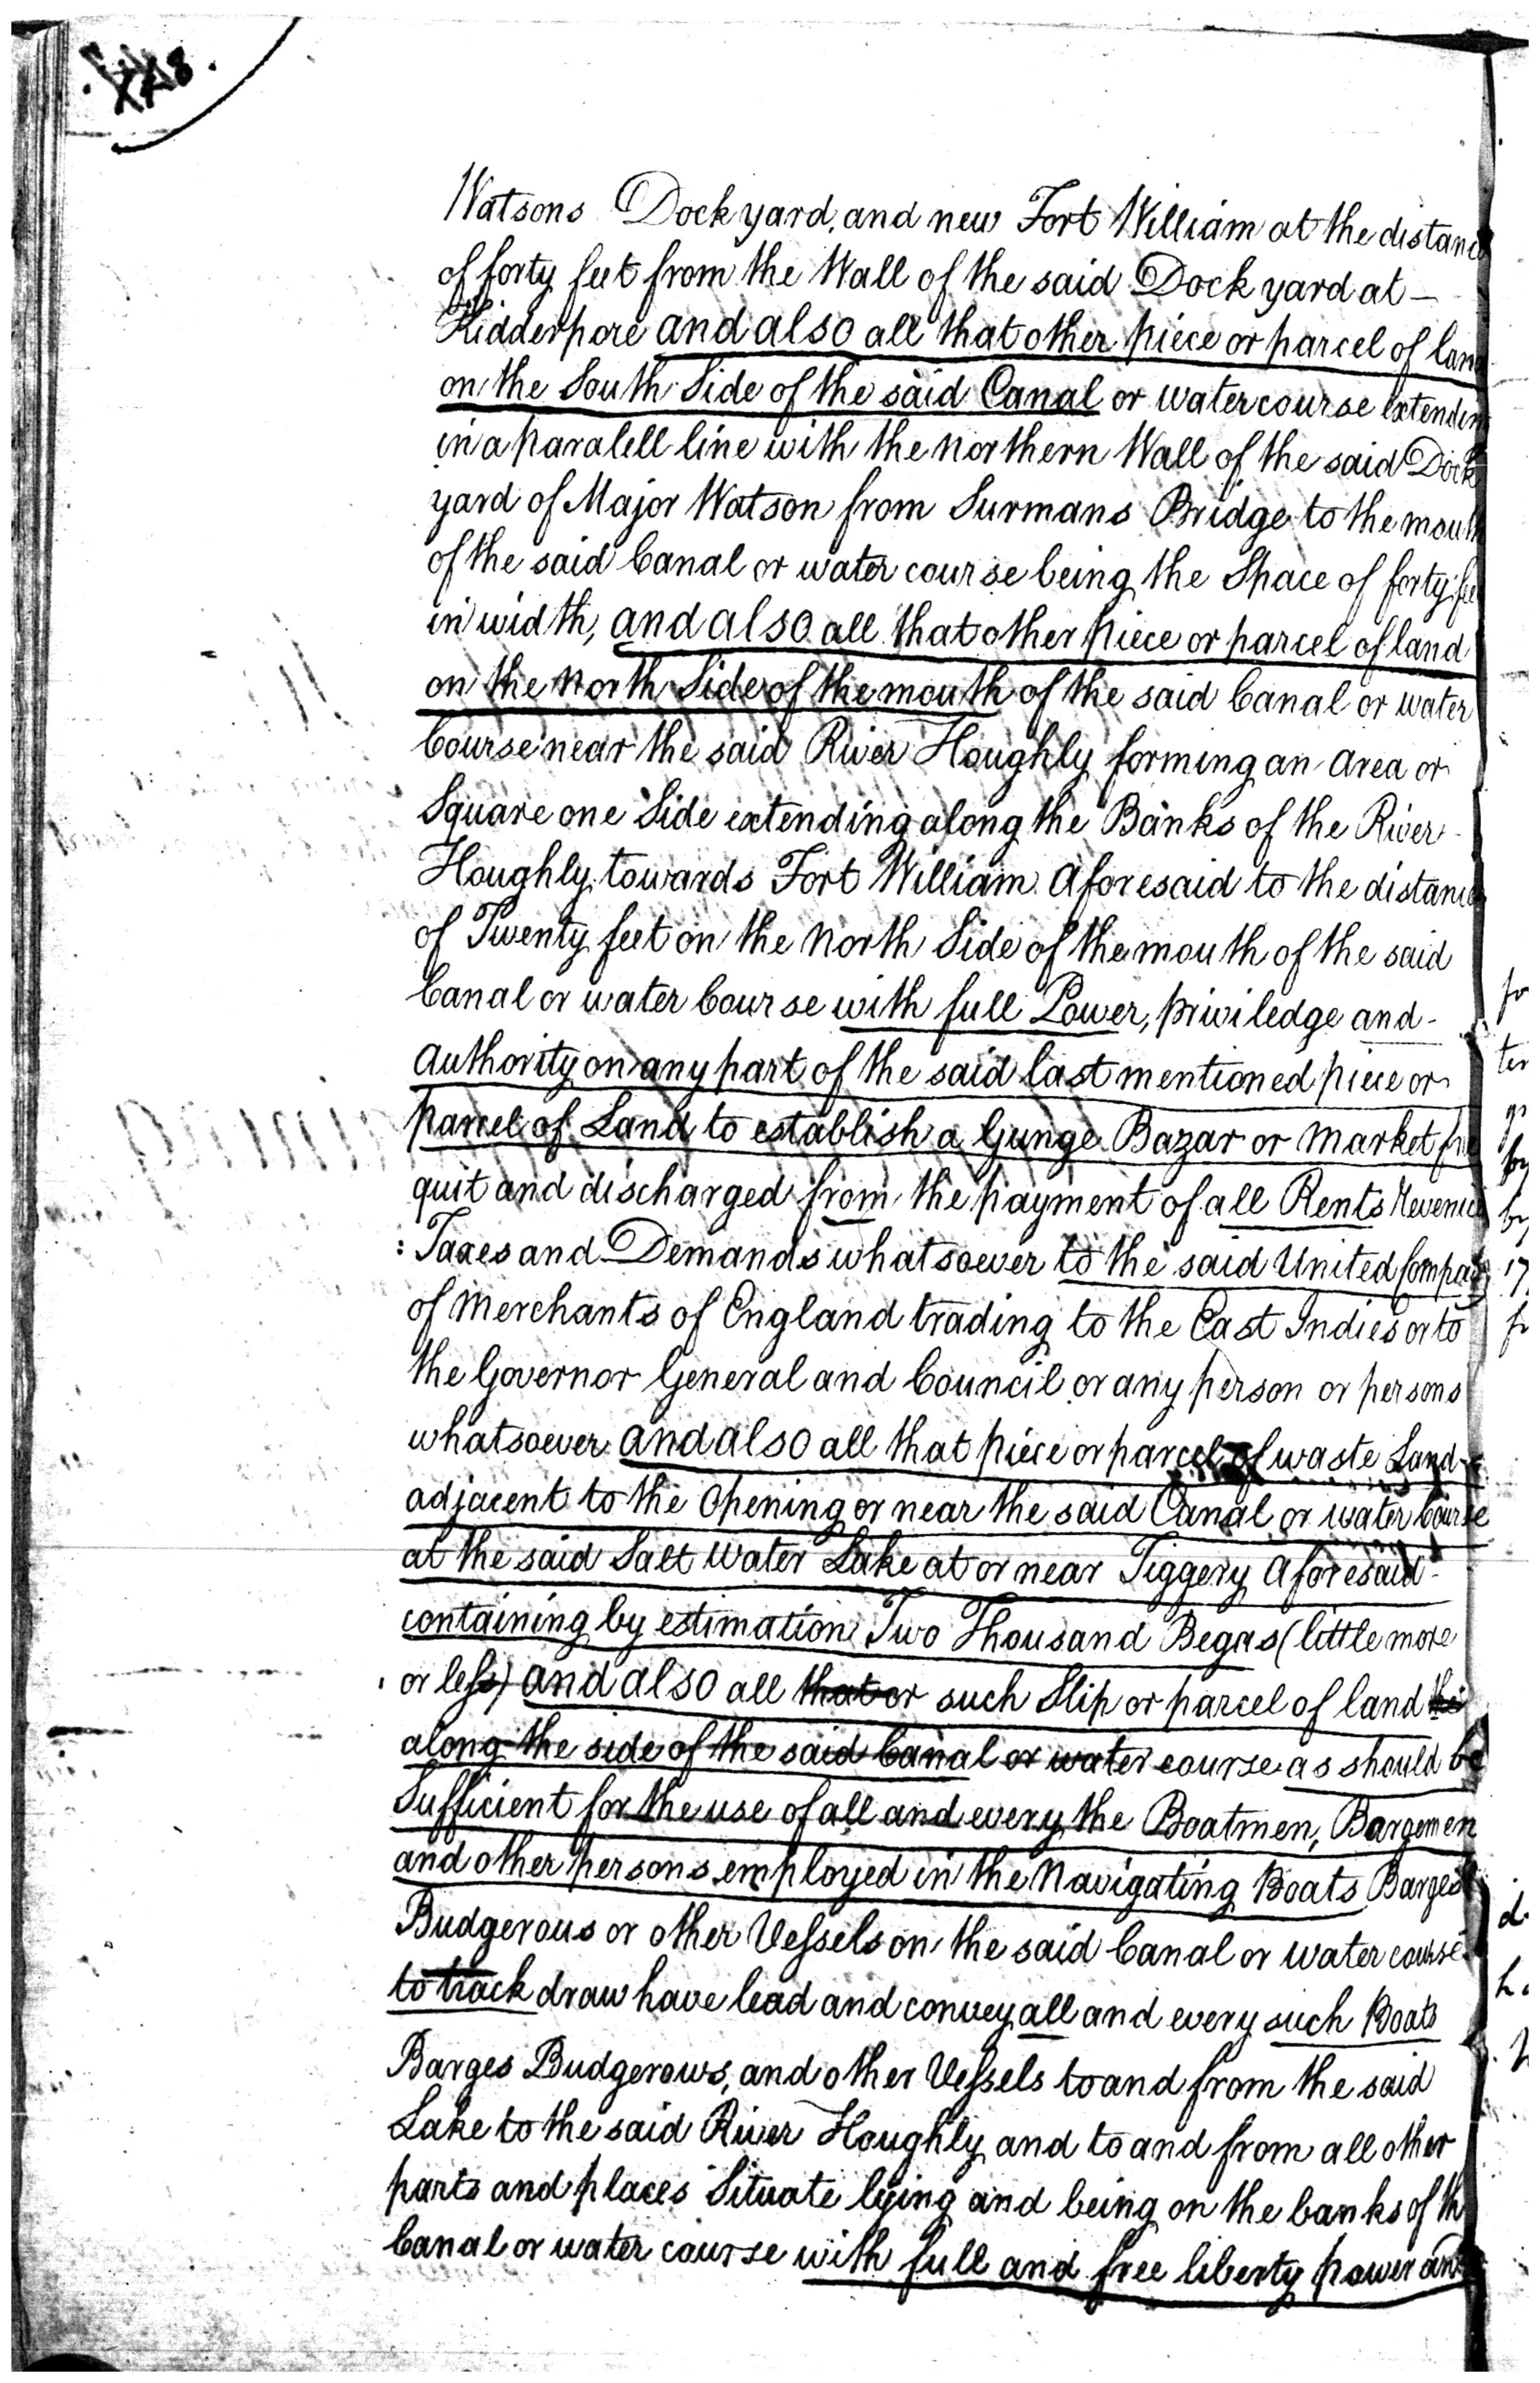 Watsons Dock yard, and new Fort William at the distance
of forty feet from the Wall of the said Dock yard at -
Kidderpore and also all that other piece or parcel of land
on the South Side of the said Canal or watercourse extending
in a paralell line with the Northern Wall of the said Dock
yard of Major Watson from Surmans Bridge to the mouth
of the said Canal or water course being the Space of forty feet
in width, and also all that other piece or parcel of land
on the North Side of the mouth of the said Canal or water
Course near the said River Houghly forming an area or
Square one Side extending along the Banks of the River
Houghly towards Fort William Aforesaid to the distance
of Twenty feet on the North Side of the mouth of the said
Canal or water Course with full Power, priviledge and -
authority on any part of the said last mentioned piece or
parcel of Land to establish a Gunge Bazar or Market free
quit and discharged from the payment of all Rents Revenues
: Taxes and Demands whatsoever to the said United Company
of Merchants of England trading to the East Indies or to
the Governor General and Council or any person or persons
whatsoever and also all that piece or parcel of waste Land
adjacent to the Opening or near the said Canal or water Course
at the said Salt Water Lake at or near Tiggery Aforesaid -
containing by estimation Two Thousand Begas (little more
or less) and also all that or such Slip or parcel of land
along the side of the said Canal or water course as should be
Sufficient for the use of all and every the Boatmen, Bargemen
and other persons employed in the Navigating Boats Barges
Budgerous or other Vessels on the said Canal or water course
to track draw have lead and convey all and every such Boats
Barges Budgerows, and other Vessels to and from the said
Lake to the said River Houghly and to and from all other
parts and places Situate lying and being on the banks of the
Canal or water course with full and free liberty power and